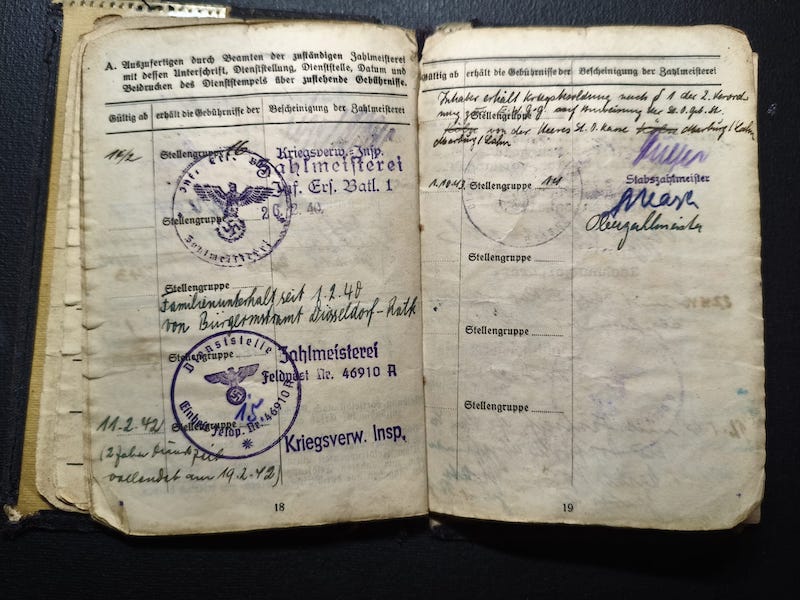 A. Auszufertigen durch Beamten der zuständigen Zahlmeisterei
mit dessen Unterschrift, Dienststellung, Dienststelle, Datum und
Beidrucken des Dienststempels über zustehende Gebührnisse.
Gültig ab erhält die Gebührnisse der Bescheinigung der Zahlmeisterei
Stellengruppe 16
Kriegsverw.-Insp.
Zahlmeisterei
Inf. Ers. Batl. 1
Stellengruppe
26.2.40.
Zahlmeisterei
Stellengruppe
Familienunterhalt seit 1.2.40
von Bürgermstramt Düsseldorf-Rath
Stellengruppe
Dienststelle
Feldp. Nr. 46910 A
Zahlmeisterei
Feldpost Nr. 46910 A
15
11.2.42 Stellengruppe
Kriegsverw. Insp.
(2 Jahre Dienstzeit
vollendet am 19.2.42)
18
Gültig ab erhält die Gebührnisse der Bescheinigung der Zahlmeisterei
Inhaber erhält Kriegsbesoldung nach § 1 der 2. Verord-
Stellengruppe
von der Heeres St. O. Kasse Marburg/Lahn
Marburg/Lahn
1.10.43 Stellengruppe 14
Stabszahlmeister
Oberzahlmeister
Stellengruppe
Stellengruppe
Stellengruppe
19